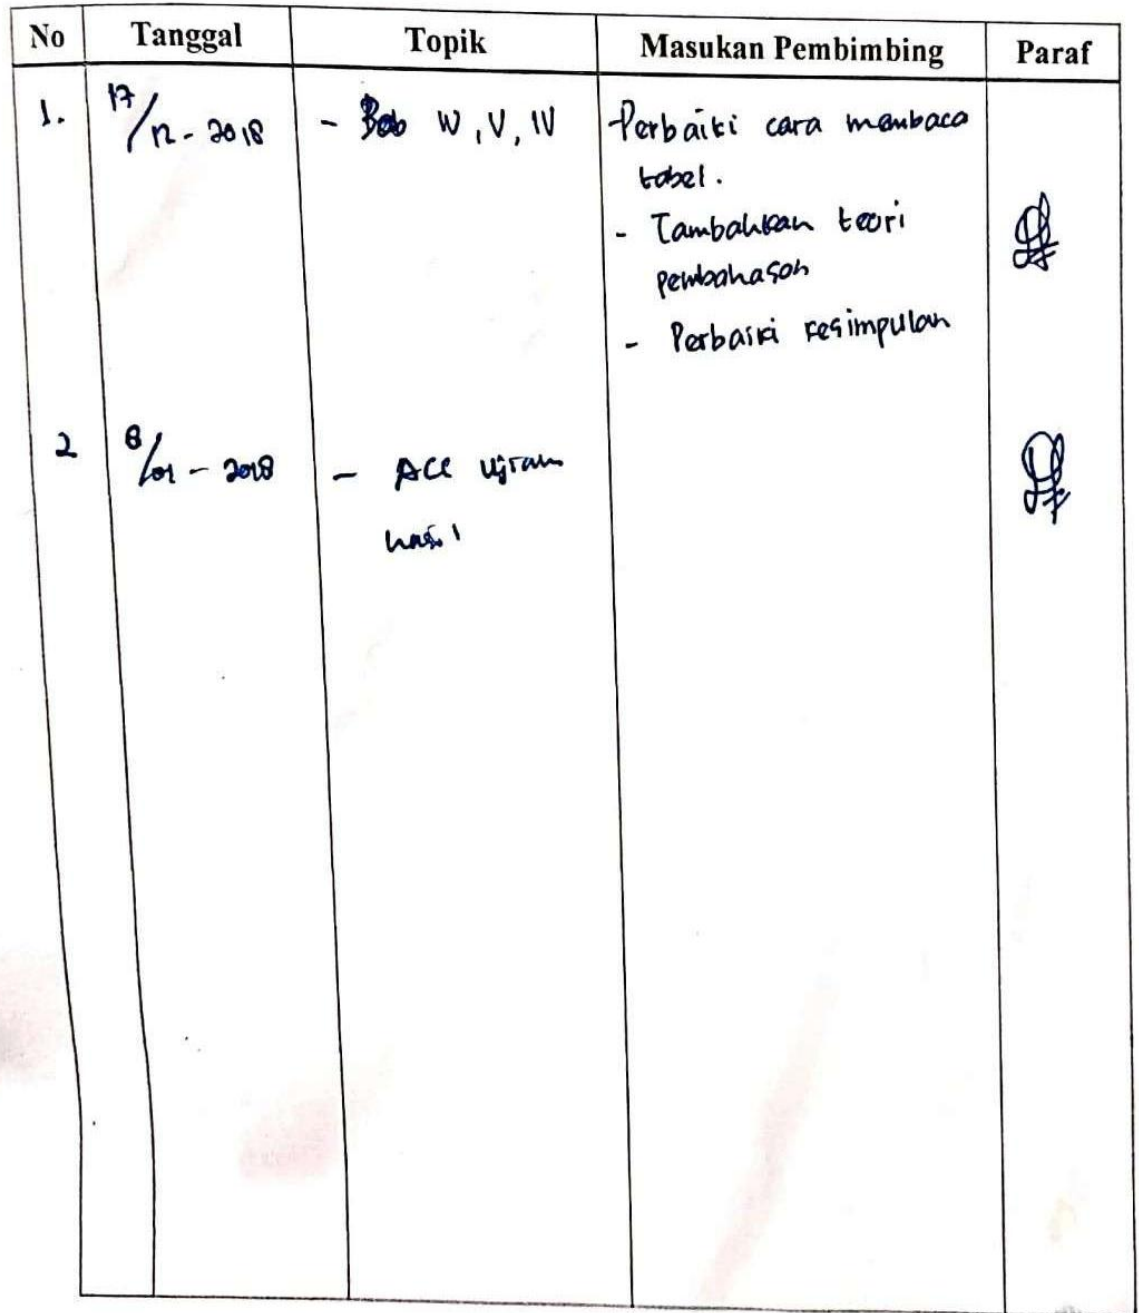 No Tanggal Topik Masukan Pembimbing Paraf
1. 17/12 - 2018 - Bab IV, V, IV Perbaiki cara membaca
tabel.
- Tambahkan teori
pembahasan
- Perbaiki kesimpulan
2 8/01 - 2018 - ACC ujian
hasil